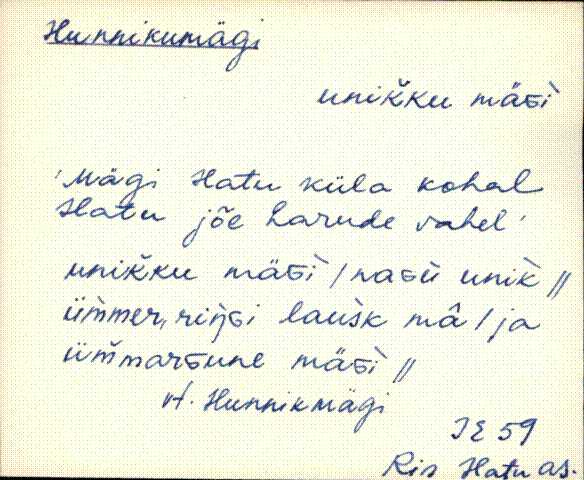 Hunnikumägi
unikku mäɢì
'Mägi Hatu küla kohal
Hatu jõe harude vahel'
unikku mäɢì / naɢù unìk //
ümmer, riŋɢi lausk mâ / ja
ümmarɢune mäɢì //
vt. Hunnikmägi
IE 59
Ris Hatu as.